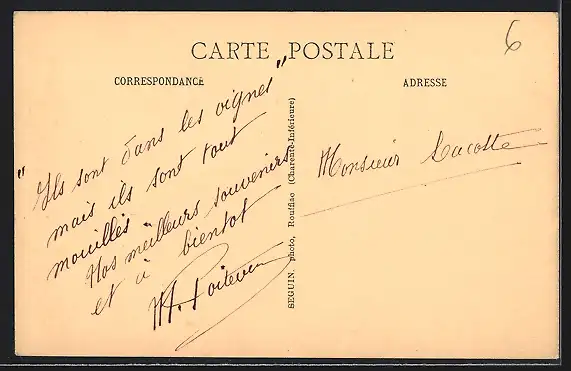 6
CARTE POSTALE
CORRESPONDANCE
ADRESSE
"Ils sont dans les vignes"
mais ils sont tout
mouillés.
Nos meilleurs souvenirs
et à bientot
H. Poitevin
SEGUIN, photo, Rouffiac (Charente-Inférieure)
Monsieur Lacotte